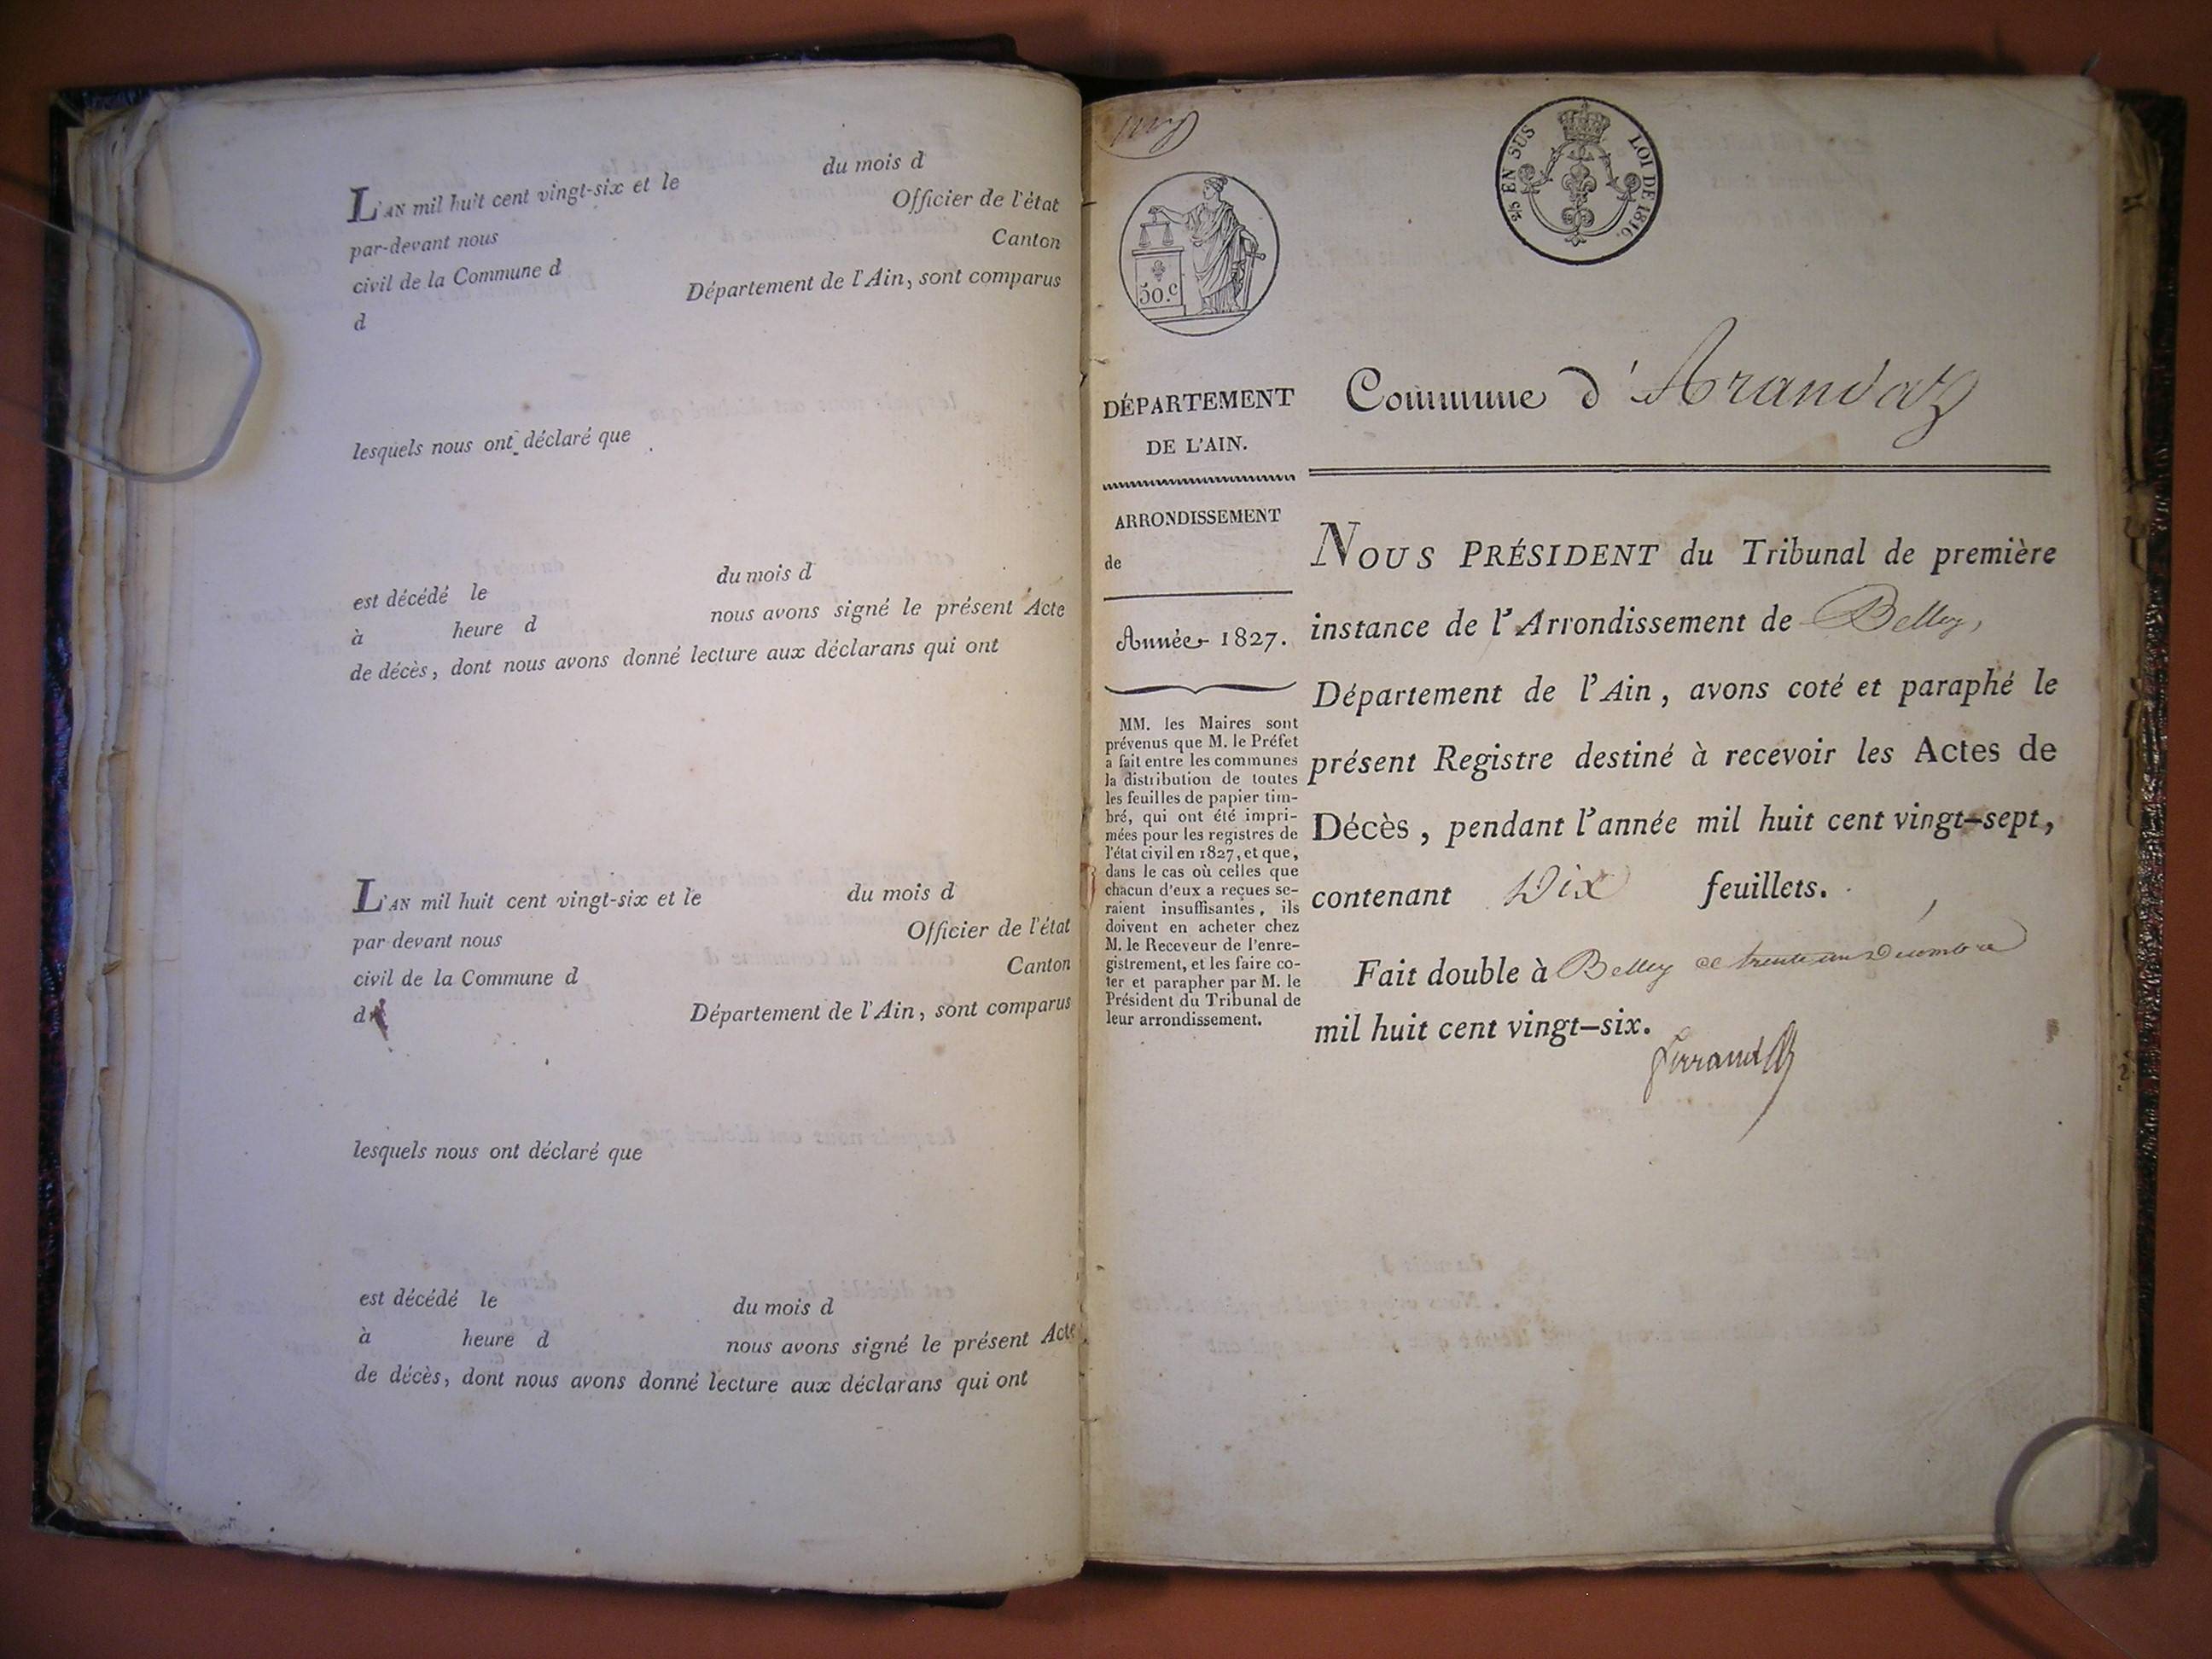 L'AN mil huit cent vingt-six et le du mois d
par-devant nous Officier de l'état
civil de la Commune d Canton
d Département de l'Ain, sont comparus
lesquels nous ont déclaré que
est décédé le du mois d
à heure d nous avons signé le présent Acte
de décès, dont nous avons donné lecture aux déclarans qui ont
L'AN mil huit cent vingt-six et le du mois d
par devant nous Officier de l'état
civil de la Commune d Canton
d Département de l'Ain, sont comparus
lesquels nous ont déclaré que
est décédé le du mois d
à heure d nous avons signé le présent Acte
de décès, dont nous avons donné lecture aux déclarans qui ont
50.c
2/5 EN SUS LOI DE 1816.
DÉPARTEMENT
DE L'AIN.
ARRONDISSEMENT
de
Année 1827.
MM. les Maires sont
prévenus que M. le Préfet
a fait entre les communes
la distribution de toutes
les feuilles de papier tim-
bré, qui ont été impri-
mées pour les registres de
l'état civil en 1827, et que,
dans le cas où celles que
chacun d'eux a reçues se-
raient insuffisantes, ils
doivent en acheter chez
M. le Receveur de l'enre-
gistrement, et les faire co-
ter et parapher par M. le
Président du Tribunal de
leur arrondissement.
Commune d'Arandaz
NOUS PRÉSIDENT du Tribunal de première
instance de l'Arrondissement de Belley,
Département de l'Ain, avons coté et paraphé le
présent Registre destiné à recevoir les Actes de
Décès, pendant l'année mil huit cent vingt-sept,
contenant Dix feuillets.
Fait double à Belley ce trente un Décembre
mil huit cent vingt-six.